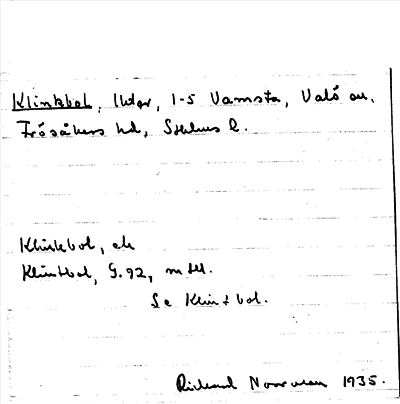 Klinkbol, lhdgr, 1-5 Vamsta, Valö sn,
Frösåkers hd, Sthlms l.
Klinkbol, ek
Klintbol, G.92, m fl.
Se Klintbol.
Rickard Norrman 1935.